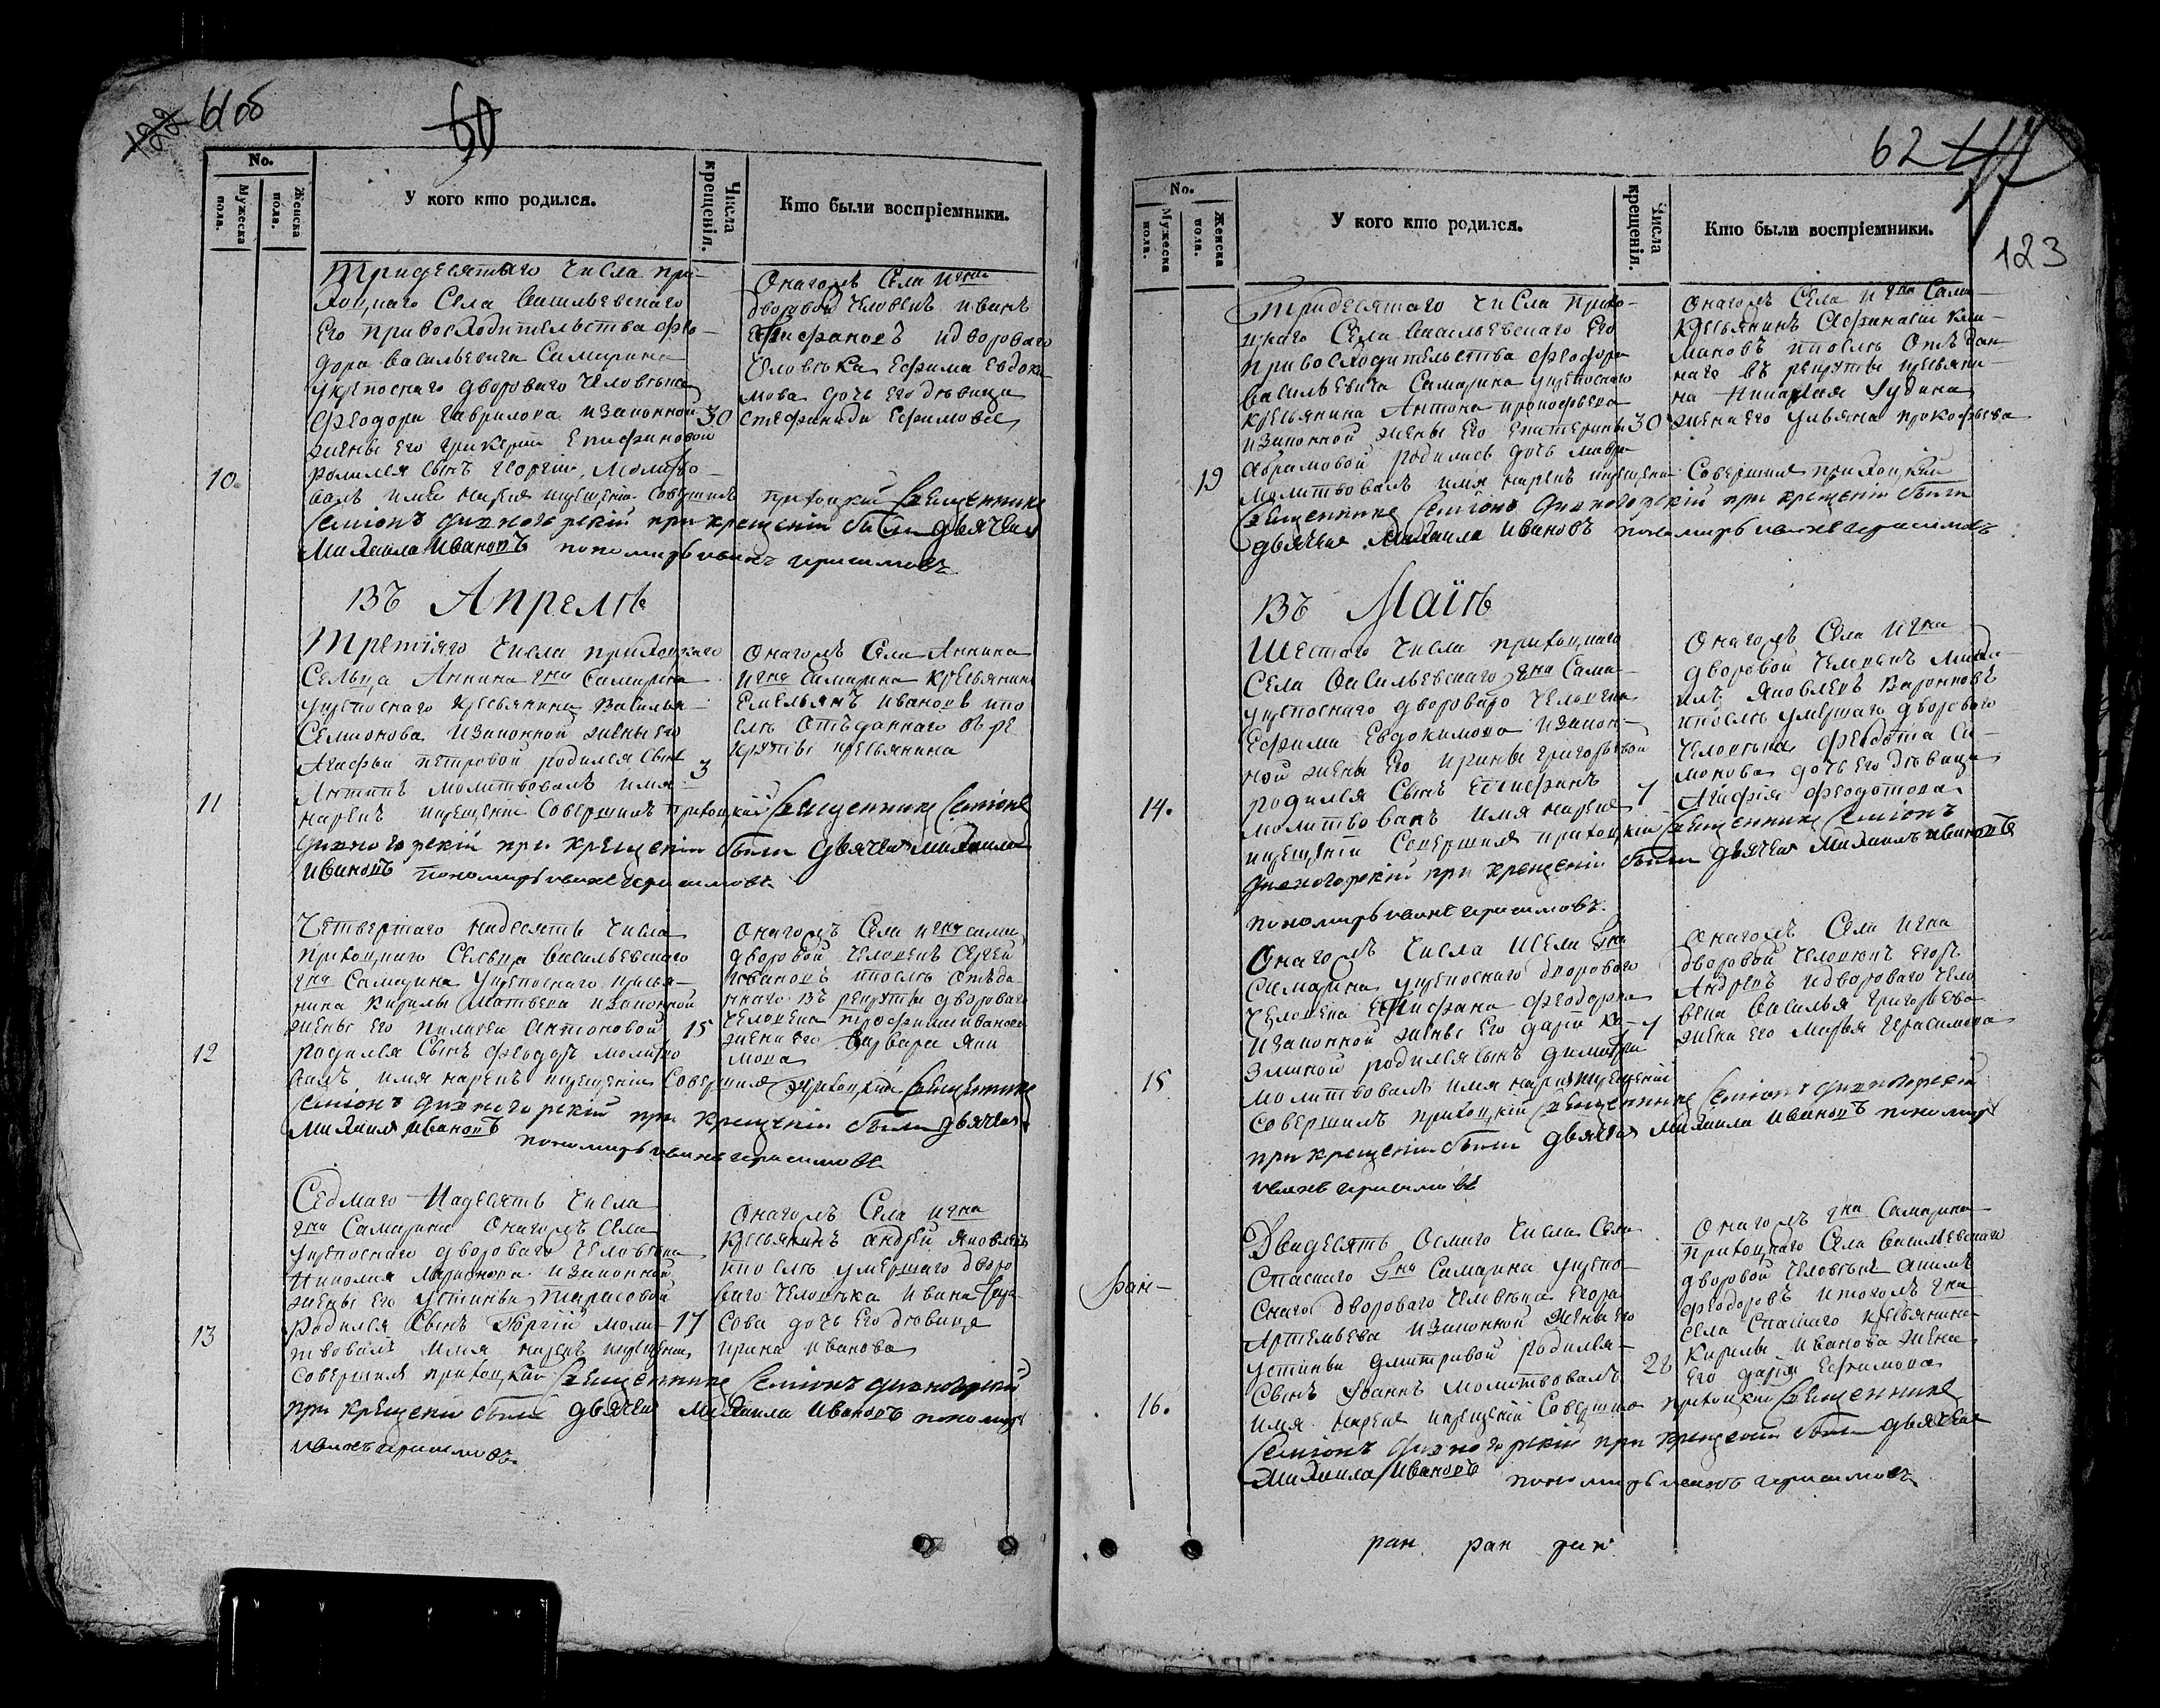 122 61об
60
No.
Мужеска пола.
Женска пола.
У кого кто родился.
Числа крещенія.
Кто были воспріемники.
Тридесятаго числа при-
хоцкаго Села Васильевскаго
Его привосходительства Фео-
дора Васильевича Самарина
укрепоснаго дворового человека
Феодора Гаврилова изаконной
жены его Гликерии Епифановой
родился сынъ Георгий, молитво-
валъ имя нареклъ икрещение совершилъ приходцкий священникъ
Семионъ при крещении были дьячекъ
Михаила Ивановъ пономарь иванъ герасимовъ
10.
30
Онагожъ Села игна
дворовой человекъ иванъ
Епифановъ идворового
человека Ефима Евдоки-
мова дочь его девица
Стефанида Ефимова
Въ Апреле
Третяго числа приходцкаго
Сельца Аннина гна Самарина
укрепоснаго крестьянина Василья
Семионова изаконной жены его
Агафьи Петровой родился сынъ
Антипъ молитвовалъ имя
нарекъ икрещение совершилъ приходцкий священникъ Семионъ
при крещении были дьячекъ Михаила
Ивановъ пономарь иванъ герасимовъ
11
3
Онагожъ Села Аннина
игна Самарина крестьянинъ
Емельянъ Ивановъ ипо
слѣ Отъданнаго въ ре
круты крестьянина
Четвертаго надесять числа
приходцкаго Сельца Васильевскаго
гна Самарина укрепоснаго кресья-
нина Кирилы Матвеева изаконной
жены его Пелагеи Антоновой
родился сынъ Феодоръ молитво
валъ имя нарекъ икрещение совершилъ приходцкий священникъ
Семионъ при крещении были дьячекъ
Михаила Ивановъ пономарь иванъ герасимовъ
12
15
Онагожъ Села игна Сама
дворовой человекъ Сергей
Ивановъ ипослѣ Отъда
ннаго въ рекруты дворового
человека Трофима Иванова
жена его Варвара Яки
мова
Седмаго Надесять числа
гна Самарина Онагожъ Села
укрепоснаго дворового человека
Николая Ларионова изаконной
жены его Устиньи Тарасовой
родился сынъ Георгий моли-
твовалъ имя нарекъ икрещение
совершилъ приходцкий священникъ Семионъ
при крещении были дьячекъ Михаила Ивановъ пономарь
иванъ герасимовъ
13
17
Онагожъ Села игна
крестьянинъ Андрей Яковлевъ
ипослѣ умершаго дворо
ваго человека Ивана
сова дочь его девица
Ирина Иванова
62 117
123
No.
Мужеска пола.
Женска пола.
У кого кто родился.
Числа крещенія.
Кто были воспріемники.
Тридесятаго числа прихо-
цкаго Села Васильевскаго Его
привосходительства Феодора
Васильевича Самарина укрепоснаго
крестьянина Антона Прокофьева
изаконной жены его Екатерины
Абрамовой родилась дочь Мавра
молитвовалъ имя нарекъ икрещение совершилъ приходцкий
священникъ Семионъ при крещении были
дьячекъ Михаила Ивановъ пономарь иванъ герасимовъ
19
30
Онагожъ Села игна Сама-
крестьянинъ Афанасий Кли-
мановъ ипослѣ Отъдан-
наго въ рекруты кресьяни
на Николая Чудина
жена его Ульяна Прокофьева
Въ Маїѣ
Шестаго числа приходцкаго
Села Васильевскаго гна Сама-
укрепоснаго дворового человека
Ефима Евдокимова изакон-
ной жены его Ирины Григорьевой
родился сынъ Епифанъ
молитвовалъ имя нарекъ
икрещении совершилъ приходцкий священникъ Семионъ
при крещении были дьячекъ Михаилъ Ивановъ
пономарь иванъ герасимовъ.
14.
7
Онагожъ Села игна
дворовой человекъ Миха-
илъ Яковлевъ Варонковъ
ипослѣ умершаго дворового
человека Феодота Си-
монова дочь его девица
Агафия Феодотова
Онагожъ числа иСела Гна
Самарина укрепоснаго дворового
человека Епифана Феодорова
изаконной жены его Дарьи Ко-
зминой родился сынъ Димитри
молитвовалъ имя нарекъ икрещении
совершилъ приходцкий священникъ Семионъ
при крещении были дьячекъ Михаила Ивановъ пономарь
иванъ герасимовъ
15
7
Онагожъ Села игна
дворовой человекъ Егоръ
Андревъ идворового чело
века Василья Григорьева
жена его Марья Герасимова
Двадесять Осмаго числа Села
Спаскаго Гна Самарина укрепо-
снаго дворового человека Егора
Артемьева изаконной жены его
Устиньи Дмитривой родился
сынъ Иоаннъ молитвовалъ
имя нарекъ икрещении совершилъ приходцкий священникъ
Семионъ при крещении были дьячекъ
Михаила Ивановъ пономарь иванъ герасимовъ
ран-
16.
28
Онагожъ гна Самарина
приходцкаго Села Васильевскаго
дворовой человекъ
Феодоровъ итогожъ гна
села Спаскаго крестьянина
Кирилы Иванова жена
его Дарья Ефимова
ран ран ран